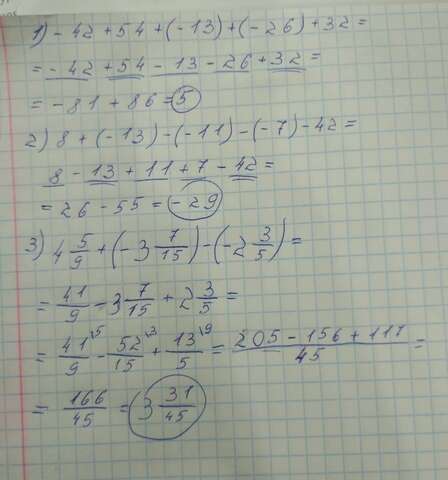 1) - 42 + 54 + (- 13) + (- 26) + 32 =
= - 42 + 54 - 13 - 26 + 32 =
= - 81 + 86 = 5
2) 8 + (- 13) - (- 11) - (- 7) - 42 =
8 - 13 + 11 + 7 - 42 =
= 26 - 55 = - 29
3) 4 5/9 + (- 3 7/15) - (- 2 3/5) =
= 41/9 - 3 7/15 + 2 3/5 =
= 41\5/9 - 52\3/15 + 13\9/5 = 205 - 156 + 117/45 =
= 166/45 = 3 31/45